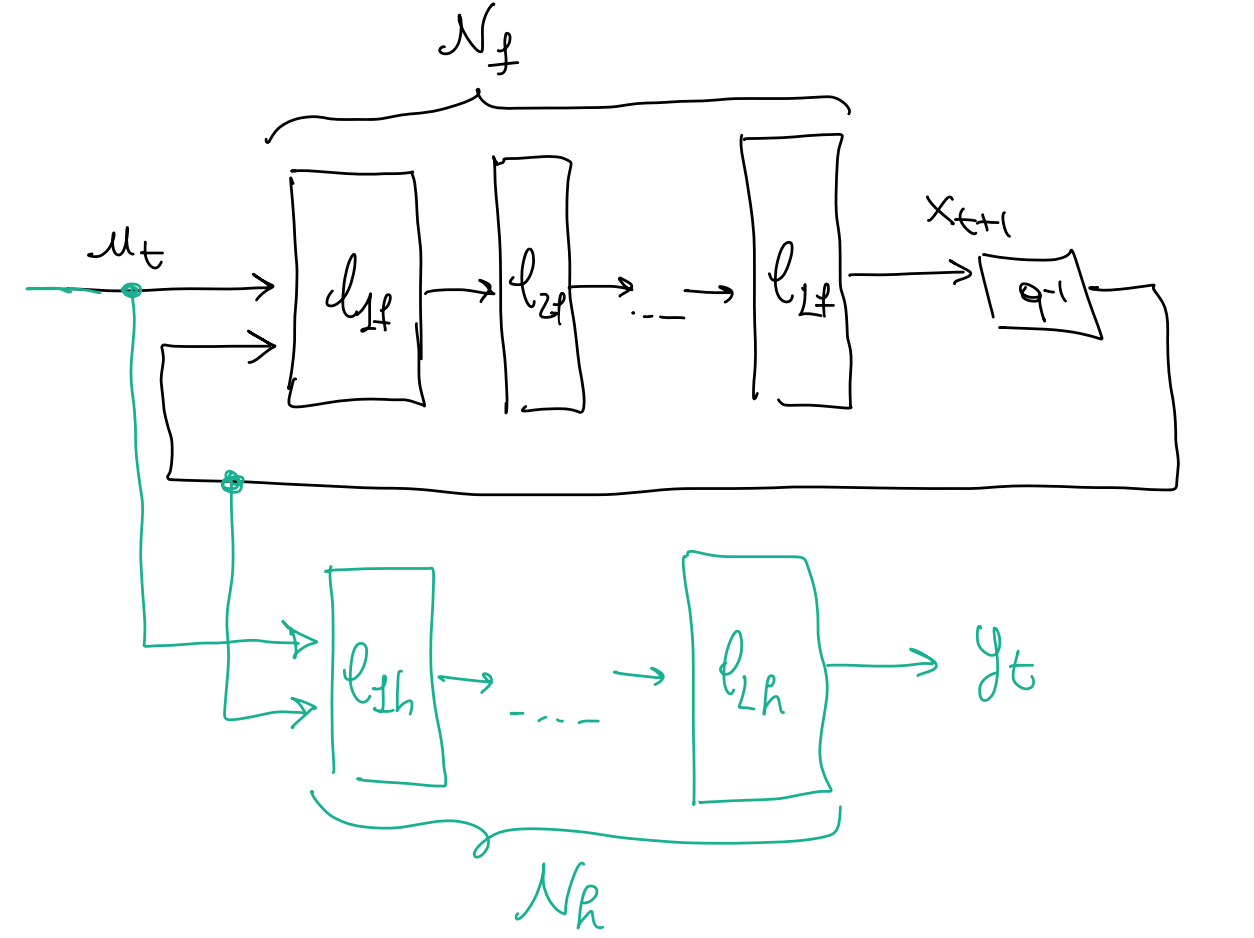 N_f
u_t
l_1f
l_2f
....
l_Lf
x_t+1
q^-1
l_1h
.....
l_Lh
y_t
N_h